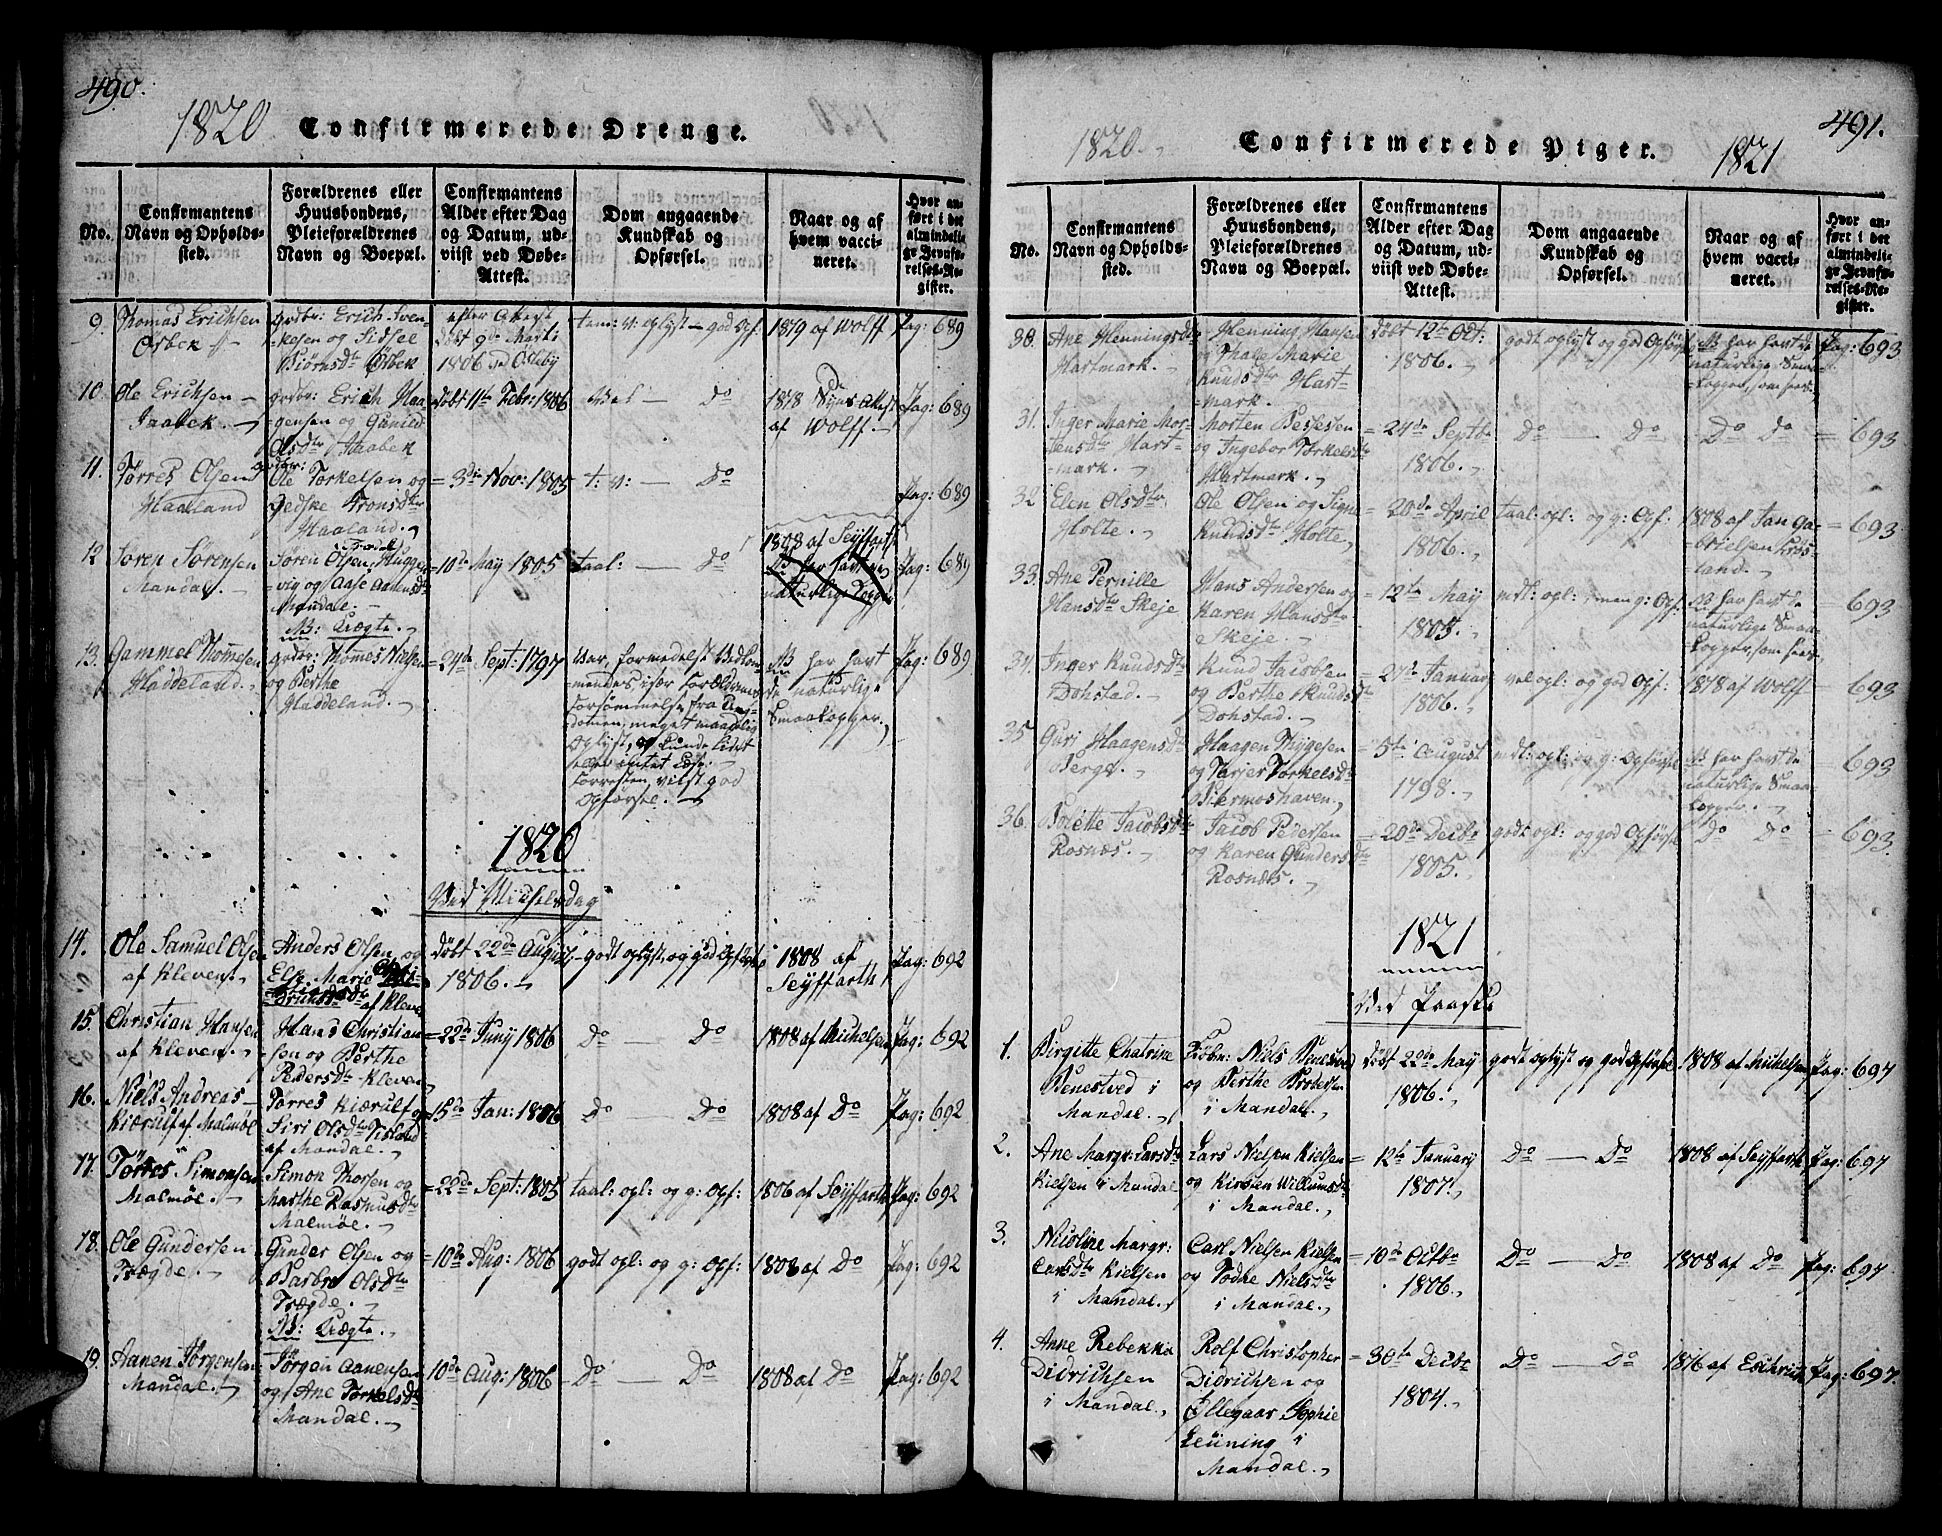 490.
1820 Confirmerede Drenge.
No.
Confirmantens Navn og Opholds-sted.
Forældrenes eller Huusbondens, Pleieforældrenes Navn og Boepæl.
Confirmantens Alder efter Dag og Datum, ud-viist ved Døbe-Attest.
Dom angaaende Kundskab og Opførsel.
Naar og af hvem vacci-neret.
Hvor an-ført i det almindeli-ge Jevnfø-relses-Re-gister.
9. Thomas Erichsen
Osbek
Erich Sven-
-kesen og Sidsel
Biørnsdtr Osbek
efter Attest
døbt 9de Marti
1806
1819 af Wolff
Pag: 689
10. Ole Erichsen
Erich Haa-
-gensen og Gunild
Olsdtr
døbt 11te Febr: 1806
Vel — Do
1818 Attest
af Wolff.
Pag: 689
11. Tørres Olsen
Haaland
Ole Torkelsen og
Tronsdtr
Haaland.
= 3die Nov: 1805
t: v: — Do
Pag: 689
12 Søren Sørensen
Mandal.
Søren Olsen
-vig og Aase Aanensdtr
Mandal.
NB: Uægte.
= 10de May 1805
taal: — Do
1808 af Seyffarth
NB har havt de
naturlige Kopper
Pag: 689
13. Gammel Thomesen
Haddeland.
Thomes Nielsen
og Berthe
Haddeland.
= 24de Sept: 1797
Var, formedelst Vedkom-
-mendes, især Forældrenes
Forsømmelse fra
meget maadelig
oplyst,
god
Opførsel.
NB har havt
de naturlige
Smaakopper.
Pag: 689
1820
Ved Michelsdag
14. Ole Samuel Olsen
af Kleven.
Anders Olsen og
Else Marie
af Kleven
døbt 22de August
1806.
godt oplyst, og god Opførsel
1808 af
Seyffarth
Pag: 692
15. Christian Hansen
af Kleven.
Hans Christian-
-sen og Berthe
Pedersdtr Kleven
= 22de Juny 1806
Do — Do
1808 af Michelsen
Pag: 692
16. Niels Andreas
Kiærulf af Malmøe
Tørres Kiærulf og
Siri Olsdtr
af Mandal.
= 15de Jan: 1806
Do — Do
1808 af Do
Pag: 692
17. Tørres Simonsen
Malmøe.
Simon Thorsen og
Marthe Rasmusdtr
Malmøe.
= 22de Sept: 1805
taal: opl: og g: Opf:
1806 af Seyffarth
Pag: 692
18. Ole Gundersen
Trægde.
Gunder Olsen og
Barbro Olsdtr
Trægde.
NB: Uægte.
= 10de Aug: 1806
godt opl: og g: Opf:
1808 af Do
Pag: 692
19. Aanen Jørgensen
Mandal.
Jørgen Aanensen
og Ane Torkelsdtr
i Mandal.
10de Aug: 1806
Do — Do
1808 af Do
Pag: 692
491.
1820. Confirmerede Piger. 1821
No.
Confirmantens Navn og Opholds-sted.
Forældrenes eller Huusbondens, Pleieforældrenes Navn og Boepæl.
Confirmantens Alder efter Dag og Datum, ud-viist ved Døbe-Attest.
Dom angaaende Kundskab og Opførsel.
Naar og af hvem vacci-neret.
Hvor an-ført i det almindeli-ge Jevnfø-relses-Re-gister.
30. Ane Henningsdtr
Hartmark.
Henning Hansen
og Thale Marie
Knudsdtr Hart-
mark.
døbt 12te Oct:
1806.
godt oplyst og god Opførsel
NB har havt de
naturlige Smaa-
-kopper, som sees.
Pag: 693
31. Inger Marie Mor-
-tensdtr Hart-
-mark.
Morten
og Ingebor Torkelsdtr
Hartmark.
= 24de Septbr
1806.
Do — Do
Do Do
= 693
32 Elen Olsdtr
Holte.
Ole Olsen og Signe
Knudsdtr Holte,
= 20de April
1806.
taal: opl: og g: Opf:
1808 af Jan Ga-
-brielsen
= 693
33. Ane Pernille
Hansdtr Skeje
Hans Andersen og
Karen Hansdtr
Skeje.
= 12te May
1805.
mdt: opl:, men g: Opf:
NB har havt de
naturlige Smaa-
kopper, som sees,
= 693
34 Inger Knudsdtr
Dohstad.
Knud Jacobsen
og Berthe Knudsdtr
Dohstad.
= 27de January
1806.
vel opl: og god Opf:
1818 af Wolff
= 693
35 Guri Haagensdtr
Berge.
Haagen Nygesen
og Torkelsdtr
= 5te August
1798.
mdl: opl: og g: Opførsel
NB har havt de
naturlige Smaa-
kopper.
= 693
36. Bolette Jacobsdtr
Rosnæs.
Jacob Pedersen
og Karen Gundersdtr
Rosnæs.
= 20de Decbr
1805.
godt opl: og god Opførsel
Do Do
= 693
1821
Ved Paaske
1. Birgitte Chatrine
Benestved i
Mandal.
Niels Benestved
og Berthe Brodersen
i Mandal.
døbt 22de May
1806.
godt oplyst og god Opførsel
1808 af Michelsen
Pag: 697
2. Ane Margr: Larsdtr
Kielsen i Mandal
Lars Nielsen Kielsen
og Kirsten Willumsdtr
i Mandal.
= 12te January
1807.
Do — Do
1808 af Seyffarth
Pag: 697
3. Nicoline Margr:
Carlsdtr Kielsen
i Mandal.
Carl Nielsen Kielsen
og Todne Nielsdtr
i Mandal.
= 10de Octbr
1806.
Do — Do
1808 af Do
Pag: 697
4. Anne Rebekka
Didrichsen
i Mandal.
Rolf Christopher
Didrichsen og
Ellegaar Sophie
Leüning i
Mandal.
= 30te Decbr
1804.
Do — Do
1816 af Eschricht
Pag: 697.